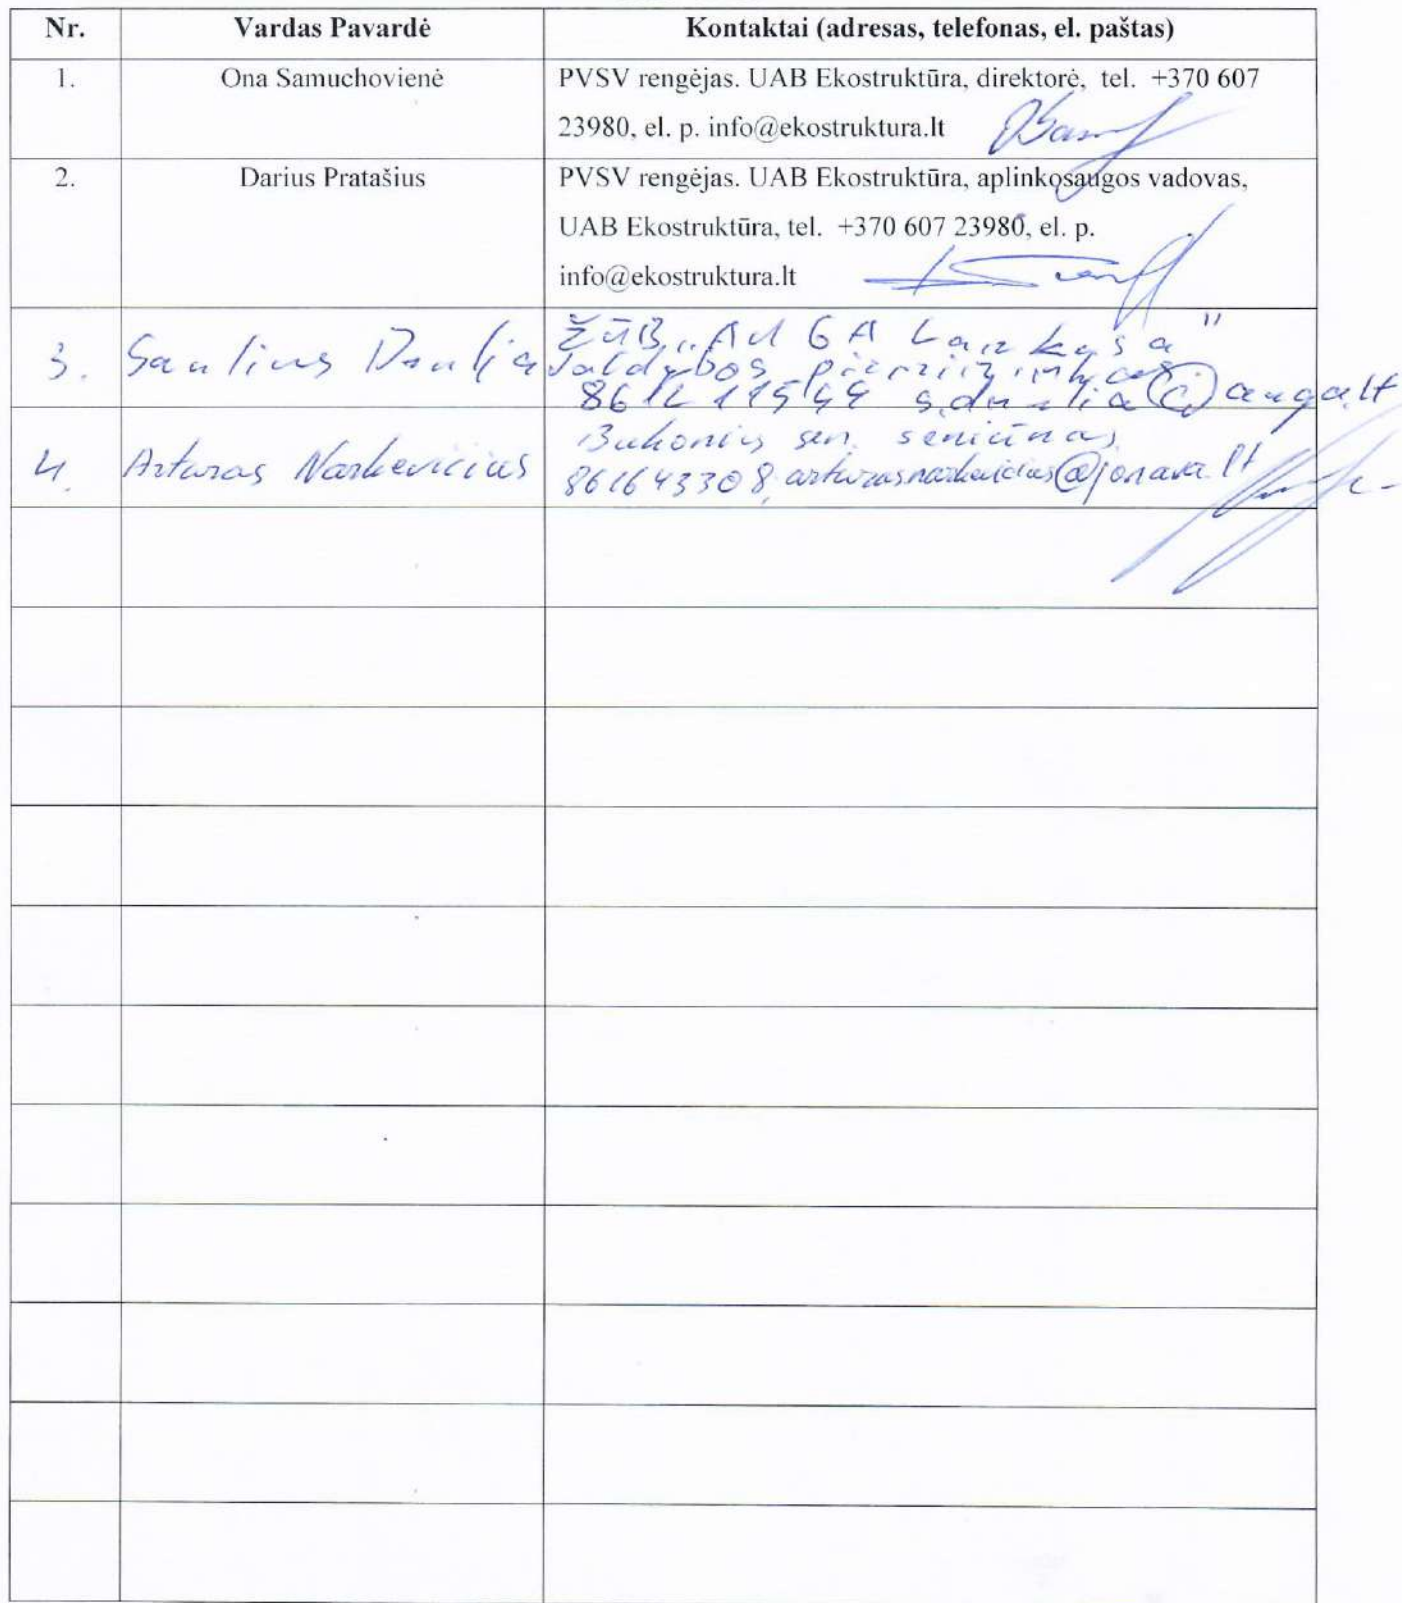 Nr. Vardas Pavardė Kontaktai (adresas, telefonas, el. paštas)
1. Ona Samuchovienė PVSV rengėjas. UAB Ekostruktūra, direktorė, tel. +370 607
23980, el. p. info@ekostruktura.lt
2. Darius Pratašius PVSV rengėjas. UAB Ekostruktūra, aplinkosaugos vadovas,
UAB Ekostruktūra, tel. +370 607 23980, el. p.
info@ekostruktura.lt
3. Saulius ŽŪB „AUGA Lankesa"
Valdybos pirmininkas
@auga.lt
4. Arturas Narkevicius Bukonių sen. seniūnas
861643308, arturasnarkevicius@jonava.lt